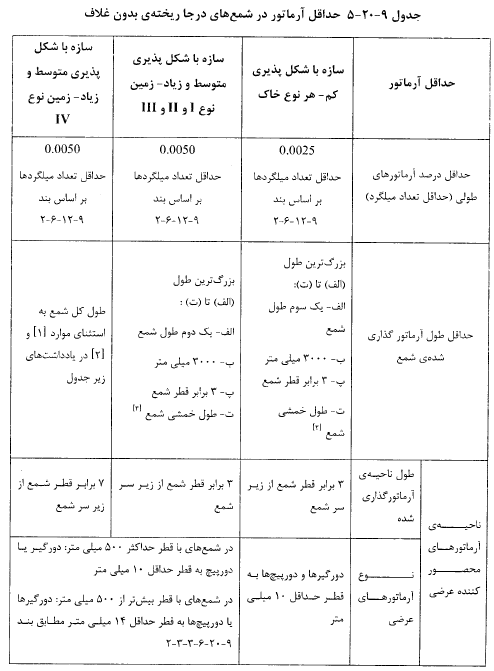 جدول ۹-۲۰-۵ حداقل آرماتور در شمع‌های درجا ریخته‌ی بدون غلاف
حداقل آرماتور
سازه با شکل پذیری
کم- هر نوع خاک
سازه با شکل پذیری
متوسط و زیاد- زمین
نوع I و II و III
سازه با شکل
پذیری متوسط و
زیاد- زمین نوع
IV
حداقل درصد آرماتورهای
طولی (حداقل تعداد میلگرد)
0.0025
حداقل تعداد میلگردها
بر اساس بند
۹-۱۲-۶-۲
0.0050
حداقل تعداد میلگردها
بر اساس بند
۹-۱۲-۶-۲
0.0050
حداقل تعداد میلگردها
بر اساس بند
۹-۱۲-۶-۲
حداقل طول آرماتور گذاری
شده‌ی شمع
بزرگ‌ترین طول
(الف) تا (ت):
الف- یک سوم طول
شمع
ب- ۳۰۰۰ میلی متر
پ- ۳ برابر قطر شمع
ت- طول خمشی
شمع [۳]
بزرگ‌ترین طول
(الف) تا (ت) :
الف- یک دوم طول شمع
ب- ۳۰۰۰ میلی متر
پ- ۳ برابر قطر شمع
ت- طول خمشی شمع [۳]
طول کل شمع به
استثنای موارد [۱] و
[۲] در یادداشت‌های
زیر جدول
ناحیه‌ی
آرماتورهای
محصور
کننده عرضی
طول ناحیه‌ی
آرماتورگذاری
شده
۳ برابر قطر شمع از زیر
سر شمع
۳ برابر قطر شمع از زیر سر
شمع
۷ برابر قطر شمع از
زیر سر شمع
نوع
آرماتورهای
عرضی
دورگیرها و دورپیچ‌ها به
قطر حداقل ۱۰ میلی
متر
در شمع‌های با قطر حداکثر ۵۰۰ میلی متر: دورگیر یا
دورپیچ به قطر حداقل ۱۰ میلی متر
در شمع‌های با قطر بیش‌تر از ۵۰۰ میلی متر: دورگیرها
یا دورپیچ‌ها به قطر حداقل ۱۴ میلی متر مطابق بند
۹-۲۰-۶-۳-۳-۲